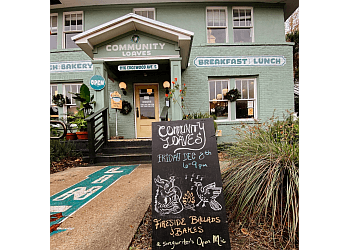 COMMUNITY
LOAVES
H BAKERY
1116 EDGEWOOD AVE S
BREAKFAST LUNCH
OPEN
COMMUNITY
LOAVES
FRIDAY DEC 8th
6-9pm
FIRESIDE BALLADS
& BAKES
a songwriter's Open Mic